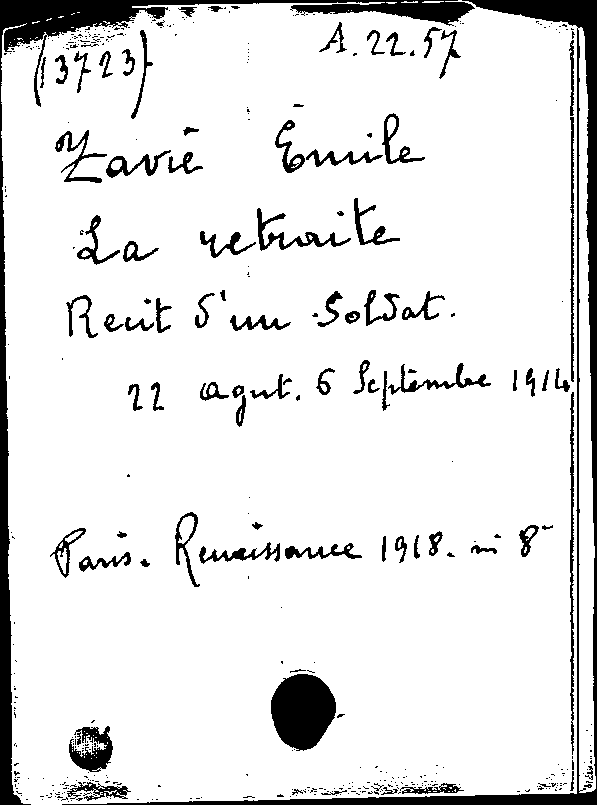 (13723) A.22.57
Zavie Émile
La retraite
Recit d'un Soldat.
22 agut. 6 Septembre 1914
Paris. Renaissance 1918. in 8°